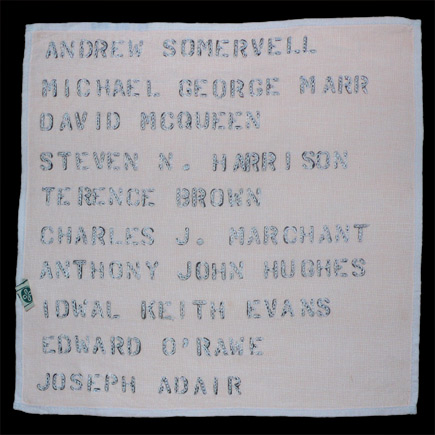 ANDREW SOMERVELL
MICHAEL GEORGE MARR
DAVID MCQUEEN
STEVEN N. HARRISON
TERENCE BROWN
CHARLES J. MARCHANT
ANTHONY JOHN HUGHES
IDWAL KEITH EVANS
EDWARD O'RAWE
JOSEPH ADAIR